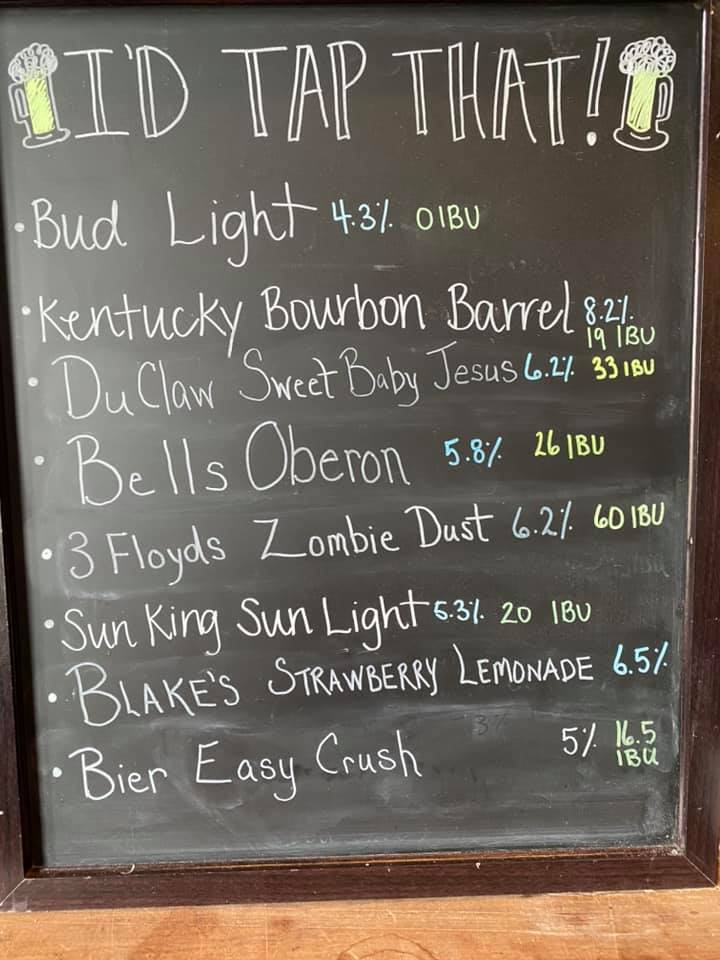 I'D TAP THAT!
• Bud Light 4.3% 0 IBU
• Kentucky Bourbon Barrel 8.2%
19 IBU
• DuClaw Sweet Baby Jesus 6.2% 33 IBU
• Bells Oberon 5.8% 26 IBU
• 3 Floyds Zombie Dust 6.2% 60 IBU
• Sun King Sun Light 5.3% 20 IBU
• BLAKE'S STRAWBERRY LEMONADE 6.5%
• Bier Easy Crush 5% 16.5
IBU